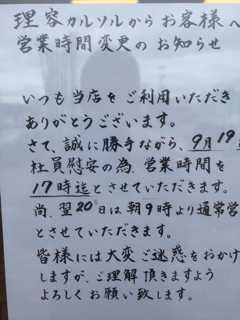 理容カルソルからお客様へ
営業時間変更のお知らせ
いつも当店をご利用いただき
ありがとうございます。
さて、誠に勝手ながら、9月19
社員慰安の為、営業時間を
17時迄とさせていただきます。
尚、翌20日は朝9時より通常営
とさせていただきます。
皆様には大変ご迷惑をおかけ
しますが、ご理解頂きますよう
よろしくお願い致します。